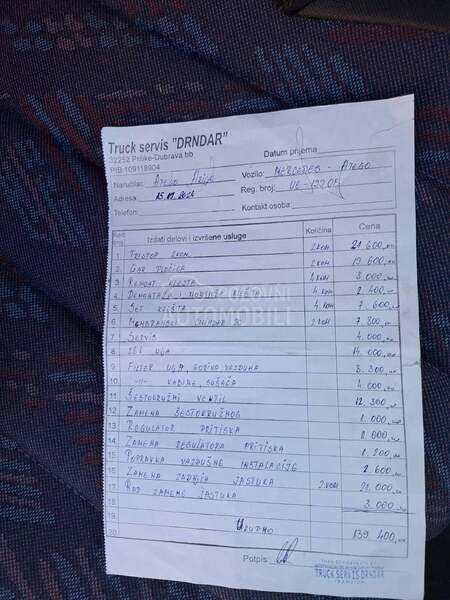 Truck servis "DRNDAR"
32252 Prilike-Dubrava bb
PIB:109118904
Datum prijema
Naručilac:
Vozilo: MERCEDES - ATEGO
Adresa
Reg. broj:
Telefon:
Kontakt osoba
Red. broj Izdati delovi i izvršene usluge Količina Cena
1 TRISTOP 2KOM 21.600,00
2 GAR PLOČICA 2KOM 19.600,00
3 REMONT KLEŠTA 4KOM 8.000,00
4 DEMONTAŽA I MONTAŽA KLEŠTA 4KOM 2.400,00
5 SET KLEŠTA 4.KOM 7.600,00
6 MEMBRANSKI CILINDAR 2KOM 7.800,00
7 SERVIS 4.000,00
8 ULJA 14.000,00
9 FILTER ULJA GORIVA VAZDUHA 8.300,00
10 -||- KABINE SUŠAČA 4.000,00
11 ŠESTOKRUŽNI VENTIL 12.300,00
12 ZAMENA ŠESTOKRUŽNOG 1.000,00
13 REGULATOR PRITISKA
14 ZAMENA REGULATORA PRITISKA 1.200,00
15 POPRAVKA VAZDUŠNE INSTALACIJE 2.600,00
16 ZAMENA ZADNJIH JASTUKA 2KOM 21.000,00
17 RAD ZAMENE JASTUKA 3.000,00
18
19
20 UKUPNO 139.400,00
Potpis:
TRUCK SERVIS DRNDAR
POLOVNI AUTOMOBILI